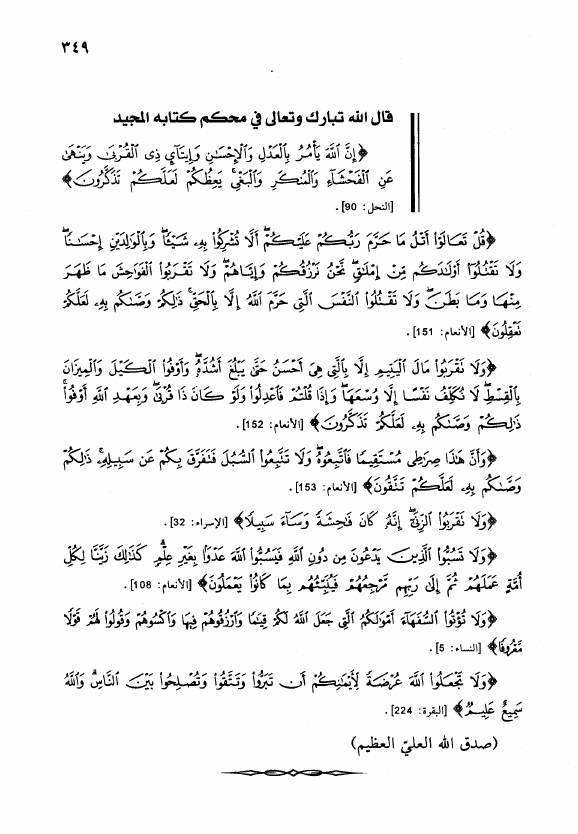 ٣٤٩
قال الله تبارك وتعالى في محكم كتابه المجيد
﴿إِنَّ ٱللَّهَ يَأْمُرُ بِٱلْعَدْلِ وَٱلْإِحْسَٰنِ وَإِيتَآئِ ذِى ٱلْقُرْبَىٰ وَيَنْهَىٰ
عَنِ ٱلْفَحْشَآءِ وَٱلْمُنكَرِ وَٱلْبَغْىِۚ يَعِظُكُمْ لَعَلَّكُمْ تَذَكَّرُونَ﴾
[النحل: 90].
﴿قُلْ تَعَالَوْا۟ أَتْلُ مَا حَرَّمَ رَبُّكُمْ عَلَيْكُمْۖ أَلَّا تُشْرِكُوا۟ بِهِۦ شَيْـًٔاۖ وَبِٱلْوَٰلِدَيْنِ إِحْسَٰنًاۖ
وَلَا تَقْتُلُوٓا۟ أَوْلَٰدَكُم مِّنْ إِمْلَٰقٍۖ نَّحْنُ نَرْزُقُكُمْ وَإِيَّاهُمْۖ وَلَا تَقْرَبُوا۟ ٱلْفَوَٰحِشَ مَا ظَهَرَ
مِنْهَا وَمَا بَطَنَۖ وَلَا تَقْتُلُوا۟ ٱلنَّفْسَ ٱلَّتِى حَرَّمَ ٱللَّهُ إِلَّا بِٱلْحَقِّۚ ذَٰلِكُمْ وَصَّىٰكُم بِهِۦ لَعَلَّكُمْ
تَعْقِلُونَ﴾ [الأنعام: 151].
﴿وَلَا تَقْرَبُوا۟ مَالَ ٱلْيَتِيمِ إِلَّا بِٱلَّتِى هِىَ أَحْسَنُ حَتَّىٰ يَبْلُغَ أَشُدَّهُۥۖ وَأَوْفُوا۟ ٱلْكَيْلَ وَٱلْمِيزَانَ
بِٱلْقِسْطِۖ لَا نُكَلِّفُ نَفْسًا إِلَّا وُسْعَهَاۖ وَإِذَا قُلْتُمْ فَٱعْدِلُوا۟ وَلَوْ كَانَ ذَا قُرْبَىٰۖ وَبِعَهْدِ ٱللَّهِ أَوْفُوا۟ۚ
ذَٰلِكُمْ وَصَّىٰكُم بِهِۦ لَعَلَّكُمْ تَذَكَّرُونَ﴾ [الأنعام: 152].
﴿وَأَنَّ هَٰذَا صِرَٰطِى مُسْتَقِيمًا فَٱتَّبِعُوهُۖ وَلَا تَتَّبِعُوا۟ ٱلسُّبُلَ فَتَفَرَّقَ بِكُمْ عَن سَبِيلِهِۦۚ ذَٰلِكُمْ
وَصَّىٰكُم بِهِۦ لَعَلَّكُمْ تَتَّقُونَ﴾ [الأنعام: 153].
﴿وَلَا تَقْرَبُوا۟ ٱلزِّنَىٰٓۖ إِنَّهُۥ كَانَ فَٰحِشَةً وَسَآءَ سَبِيلًا﴾ [الإسراء: 32].
﴿وَلَا تَسُبُّوا۟ ٱلَّذِينَ يَدْعُونَ مِن دُونِ ٱللَّهِ فَيَسُبُّوا۟ ٱللَّهَ عَدْوًۢا بِغَيْرِ عِلْمٍۗ كَذَٰلِكَ زَيَّنَّا لِكُلِّ
أُمَّةٍ عَمَلَهُمْ ثُمَّ إِلَىٰ رَبِّهِم مَّرْجِعُهُمْ فَيُنَبِّئُهُم بِمَا كَانُوا۟ يَعْمَلُونَ﴾ [الأنعام: 108].
﴿وَلَا تُؤْتُوا۟ ٱلسُّفَهَآءَ أَمْوَٰلَكُمُ ٱلَّتِى جَعَلَ ٱللَّهُ لَكُمْ قِيَٰمًا وَٱرْزُقُوهُمْ فِيهَا وَٱكْسُوهُمْ وَقُولُوا۟ لَهُمْ قَوْلًا
مَّعْرُوفًا﴾ [النساء: 5].
﴿وَلَا تَجْعَلُوا۟ ٱللَّهَ عُرْضَةً لِّأَيْمَٰنِكُمْ أَن تَبَرُّوا۟ وَتَتَّقُوا۟ وَتُصْلِحُوا۟ بَيْنَ ٱلنَّاسِۗ وَٱللَّهُ
سَمِيعٌ عَلِيمٌ﴾ [البقرة: 224].
(صدق الله العليّ العظيم)